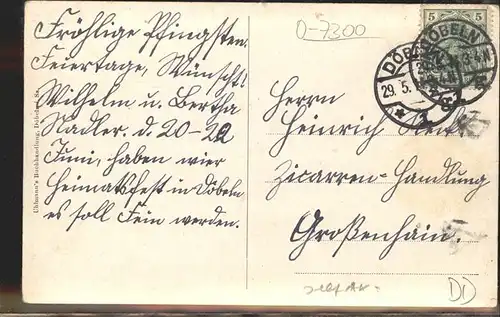 Fröhlige Pfingsten
Feuertage, Wünscht
Wilhelm u. Bertha
Stadler. d. 20-22
Juni, haben wier
Heimatsfest in Döbeln
es soll Fein werden.
Uhlmann's Buchhandlung, Döbeln, Sa.
D-7300
5 5
DÖBELN
DÖBELN
29.5.
Herrn
Heinrich
Zicarren-Handlung
Großenhain.
DD